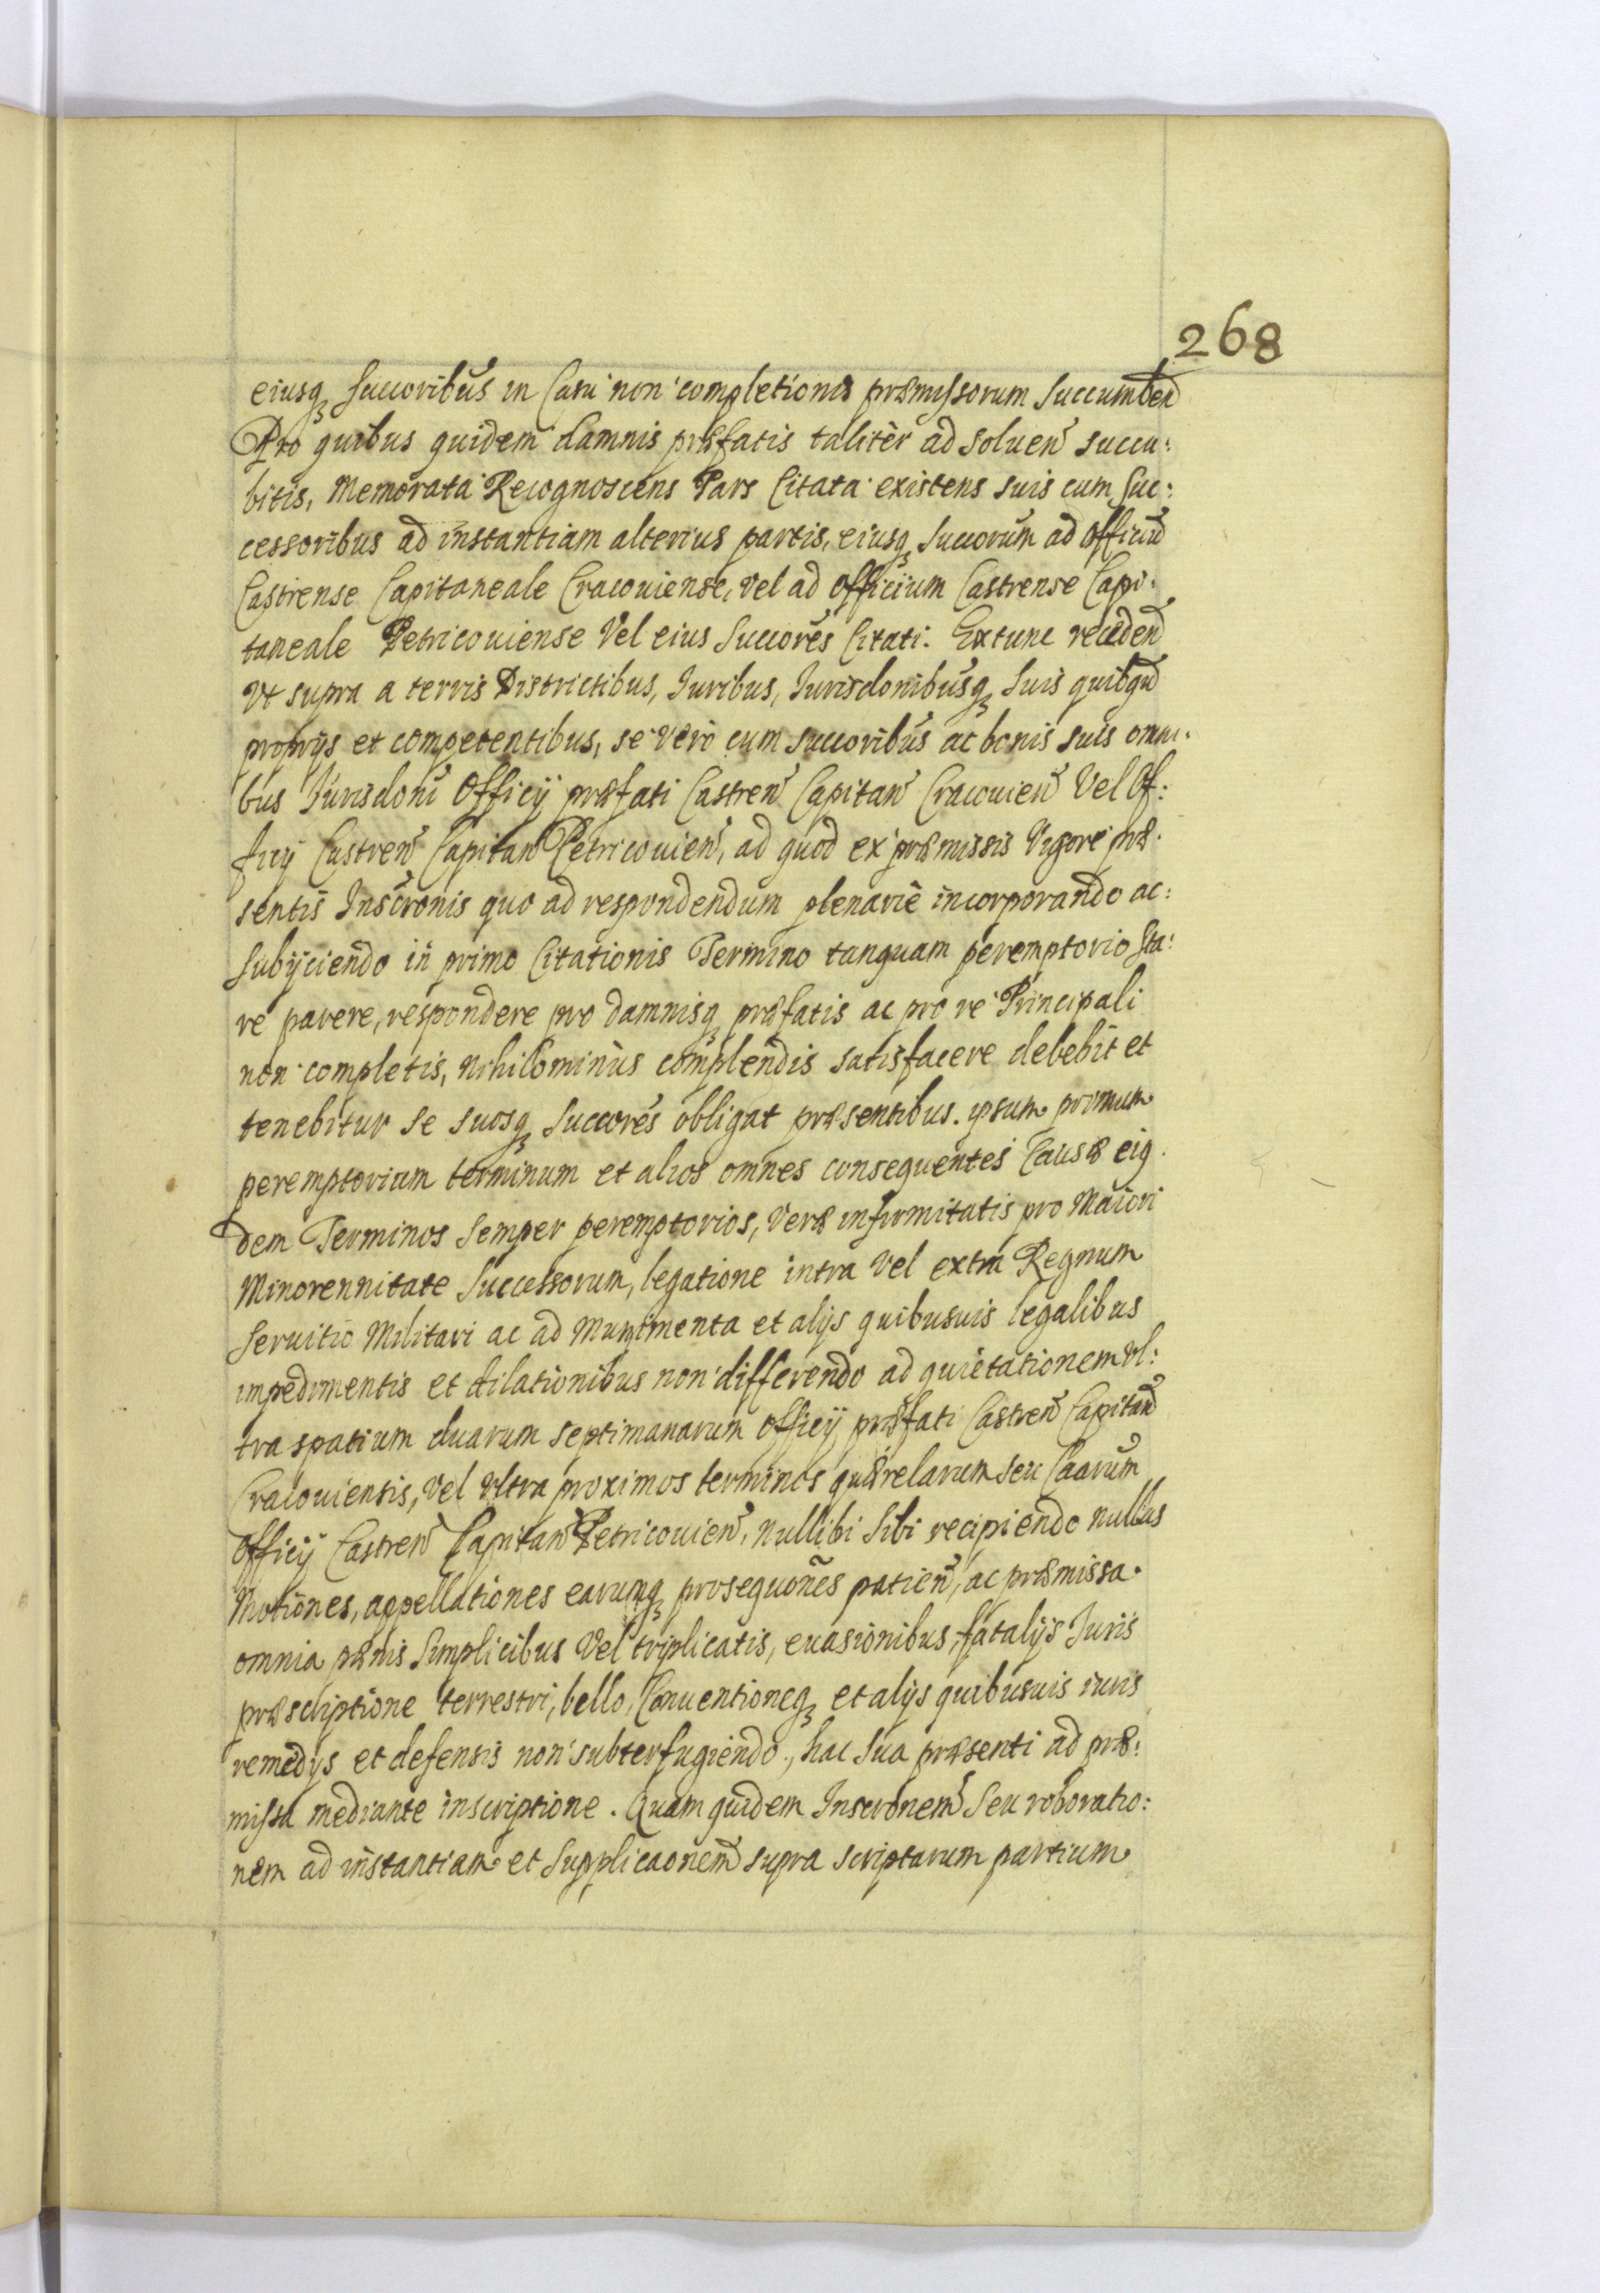 268
eiusq₃ Succoribus in Casu non completionis præmissorum Succumben
Pro quibus quidem damnis præfatis taliter ad soluen succu:
bitis, Memorata Recognoscens Pars Citata existens suis cum Suc:
cessoribus ad instantiam alterius partis, eiusq₃ Succorum ad Officiu
Castrense Capitaneale Cracouiense, vel ad officium Castrense Capi:
taneale Petricouiense Vel eius Succores Citati. Extunc receden
Vt supra a terris Districtibus, Iuribus, Iurisdonibusq₃ Suis quibq
proprijs et competentibus, se vero cum succoribus ac bonis suis omni:
bus Iurisdoni Officij præfati Castren Capitan Cracouien Vel Of:
ficij Castren Capitan Petricouien, ad quod ex præmissis Vigore præ:
sentis Inscronis quo ad respondendum plenarie incorporando ac:
Subijciendo in primo Citationis Termino tanquam peremptorio Sta:
re parere, respondere pro damnisq₃ præfatis ac pro re Principali
non completis, nihilominus complendis satisfacere debebit et
tenebitur se suosq₃ Succores obligat præsentibus. ipsum primum
peremptorium terminum et alios omnes consequentes Causæ eiq.
dem Terminos Semper peremptorios, Veræ infirmitatis pro Maiori
Minorennitate Successorum, legatione intra Vel extra Regnum
Seruitio Militari ac ad Munimenta et alijs quibusuis legalibus
impedimentis et dilationibus non differendo ad quietationem Vl:
tra spatium duarum septimanarum officij præfati Castren Capitan
Cracouiensis, Vel Vltra proximos terminos quærelarum seu Caarum
Officij Castren Capitan Petricouien, nullibi Sibi recipiendo nullas
Motiones, appellationes earumq₃ prosequones patien, ac præmissa.
omnia pænis Simplicibus Vel triplicatis, euasionibus, fatalijs Iuris
præscriptione terrestri, bello, Conuentioneq₃ et alijs quibusuis iuris
remedijs et defensis non subterfugiendo, hac Sua præsenti ad præ:
missa mediante inscriptione. Quam quidem Inscronem Seu roboratio:
nem ad instantiam et Supplicaonem supra scriptarum partium